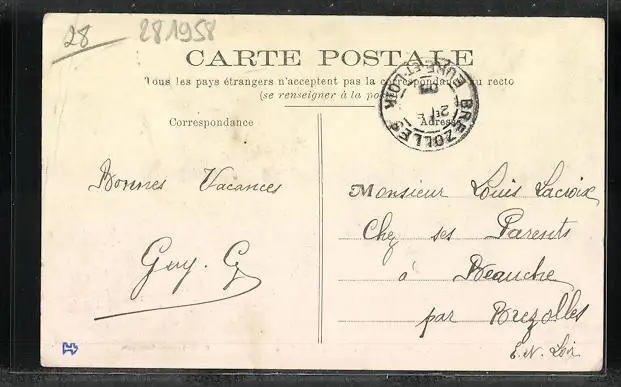 28
281958
CARTE POSTALE
Tous les pays étrangers n'acceptent pas la correspondance au recto
(se renseigner à la
BREZOLLES
EURE-ET-LOIR
Correspondance
Adresse
Bonnes Vacances
Guy. G
Monsieur Louis Lacroix
Chez ses Parents
à Beauche
par Brezolles
E. N. Loir